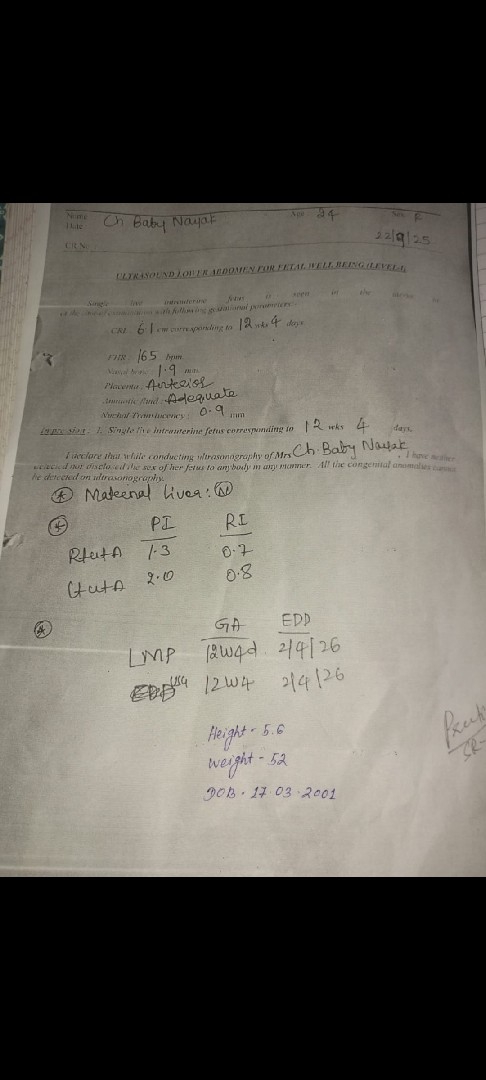 Name Ch Baby Nayak Age 24 Sex F
Date 22/9/25
ULTRASOUND LOWER ABDOMEN FOR FETAL WELL BEING (LEVEL-I)
Single live intrauterine fetus is seen in the
with following gestational parameters
CRL 61 cm corresponding to 12 wks 4 days
FHR: 165 bpm
Nasal bone 1.9 mm
Placenta: Anterior
Amniotic fluid: Adequate
Nuchal Translucency 0.9 mm
Impression: 1. Single live intrauterine fetus corresponding to 12 wks 4 days.
I declare that while conducting ultrasonography of Mrs Ch. Baby Nayak, I have neither
detected nor disclosed the sex of her fetus to anybody in any manner. All the congenital anomalies cannot
be detected on ultrasonography.
Maternal Liver: N
PI RI
RtutA 1.3 0.7
LtutA 2.0 0.8
GA EDD
LMP 12W4d 2/4/26
USG 12W4 2/4/26
Height - 5.6
weight - 52
DOB - 17.03.2001